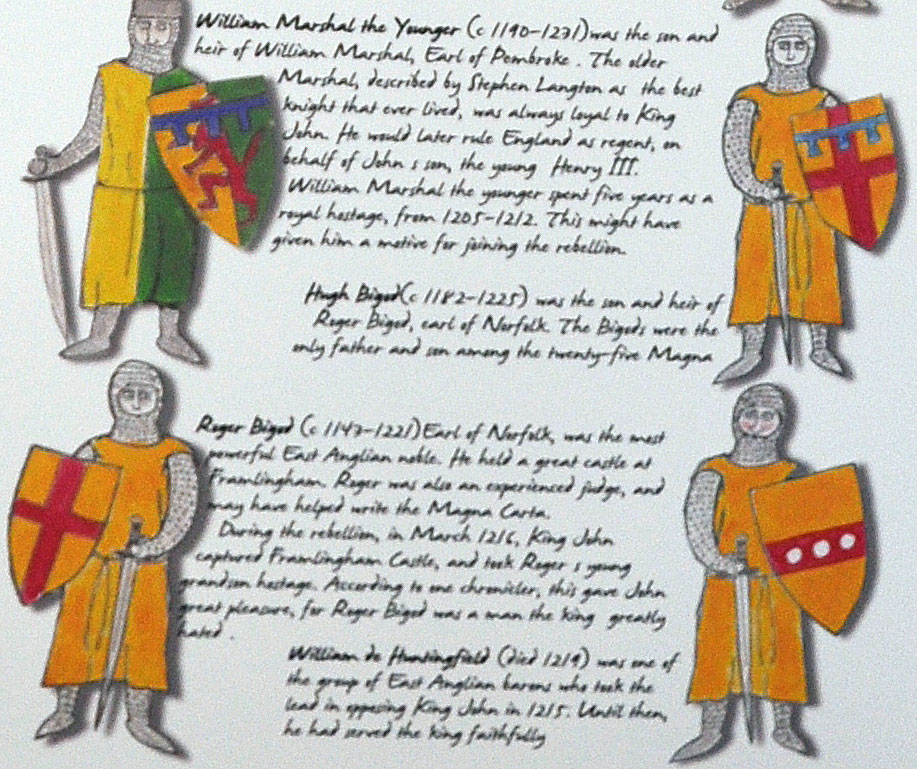 William Marshal the Younger (c 1190-1231) was the son and
heir of William Marshal, Earl of Pembroke . The older
Marshal, described by Stephen Langton as the best
knight that ever lived, was always loyal to King
John. He would later rule England as regent, on
behalf of John s son, the young Henry III.
William Marshal the younger spent five years as a
royal hostage, from 1205-1212. This might have
given him a motive for joining the rebellion.
Hugh Bigod(c 1182-1225) was the son and heir of
Roger Bigod, earl of Norfolk. The Bigods were the
only father and son among the twenty-five Magna
Roger Bigod (c 1143-1221)Earl of Norfolk, was the most
powerful East Anglian noble. He held a great castle at
Framlingham. Roger was also an experienced judge, and
may have helped write the Magna Carta.
During the rebellion, in March 1216, King John
captured Framlingham Castle, and took Roger s young
grandson hostage. According to one chronicler, this gave John
great pleasure, for Roger Bigod was a man the king greatly
hated .
William de Huntingfield (died 1219) was one of
the group of East Anglian barons who took the
lead in opposing King John in 1215. Until then,
he had served the king faithfully